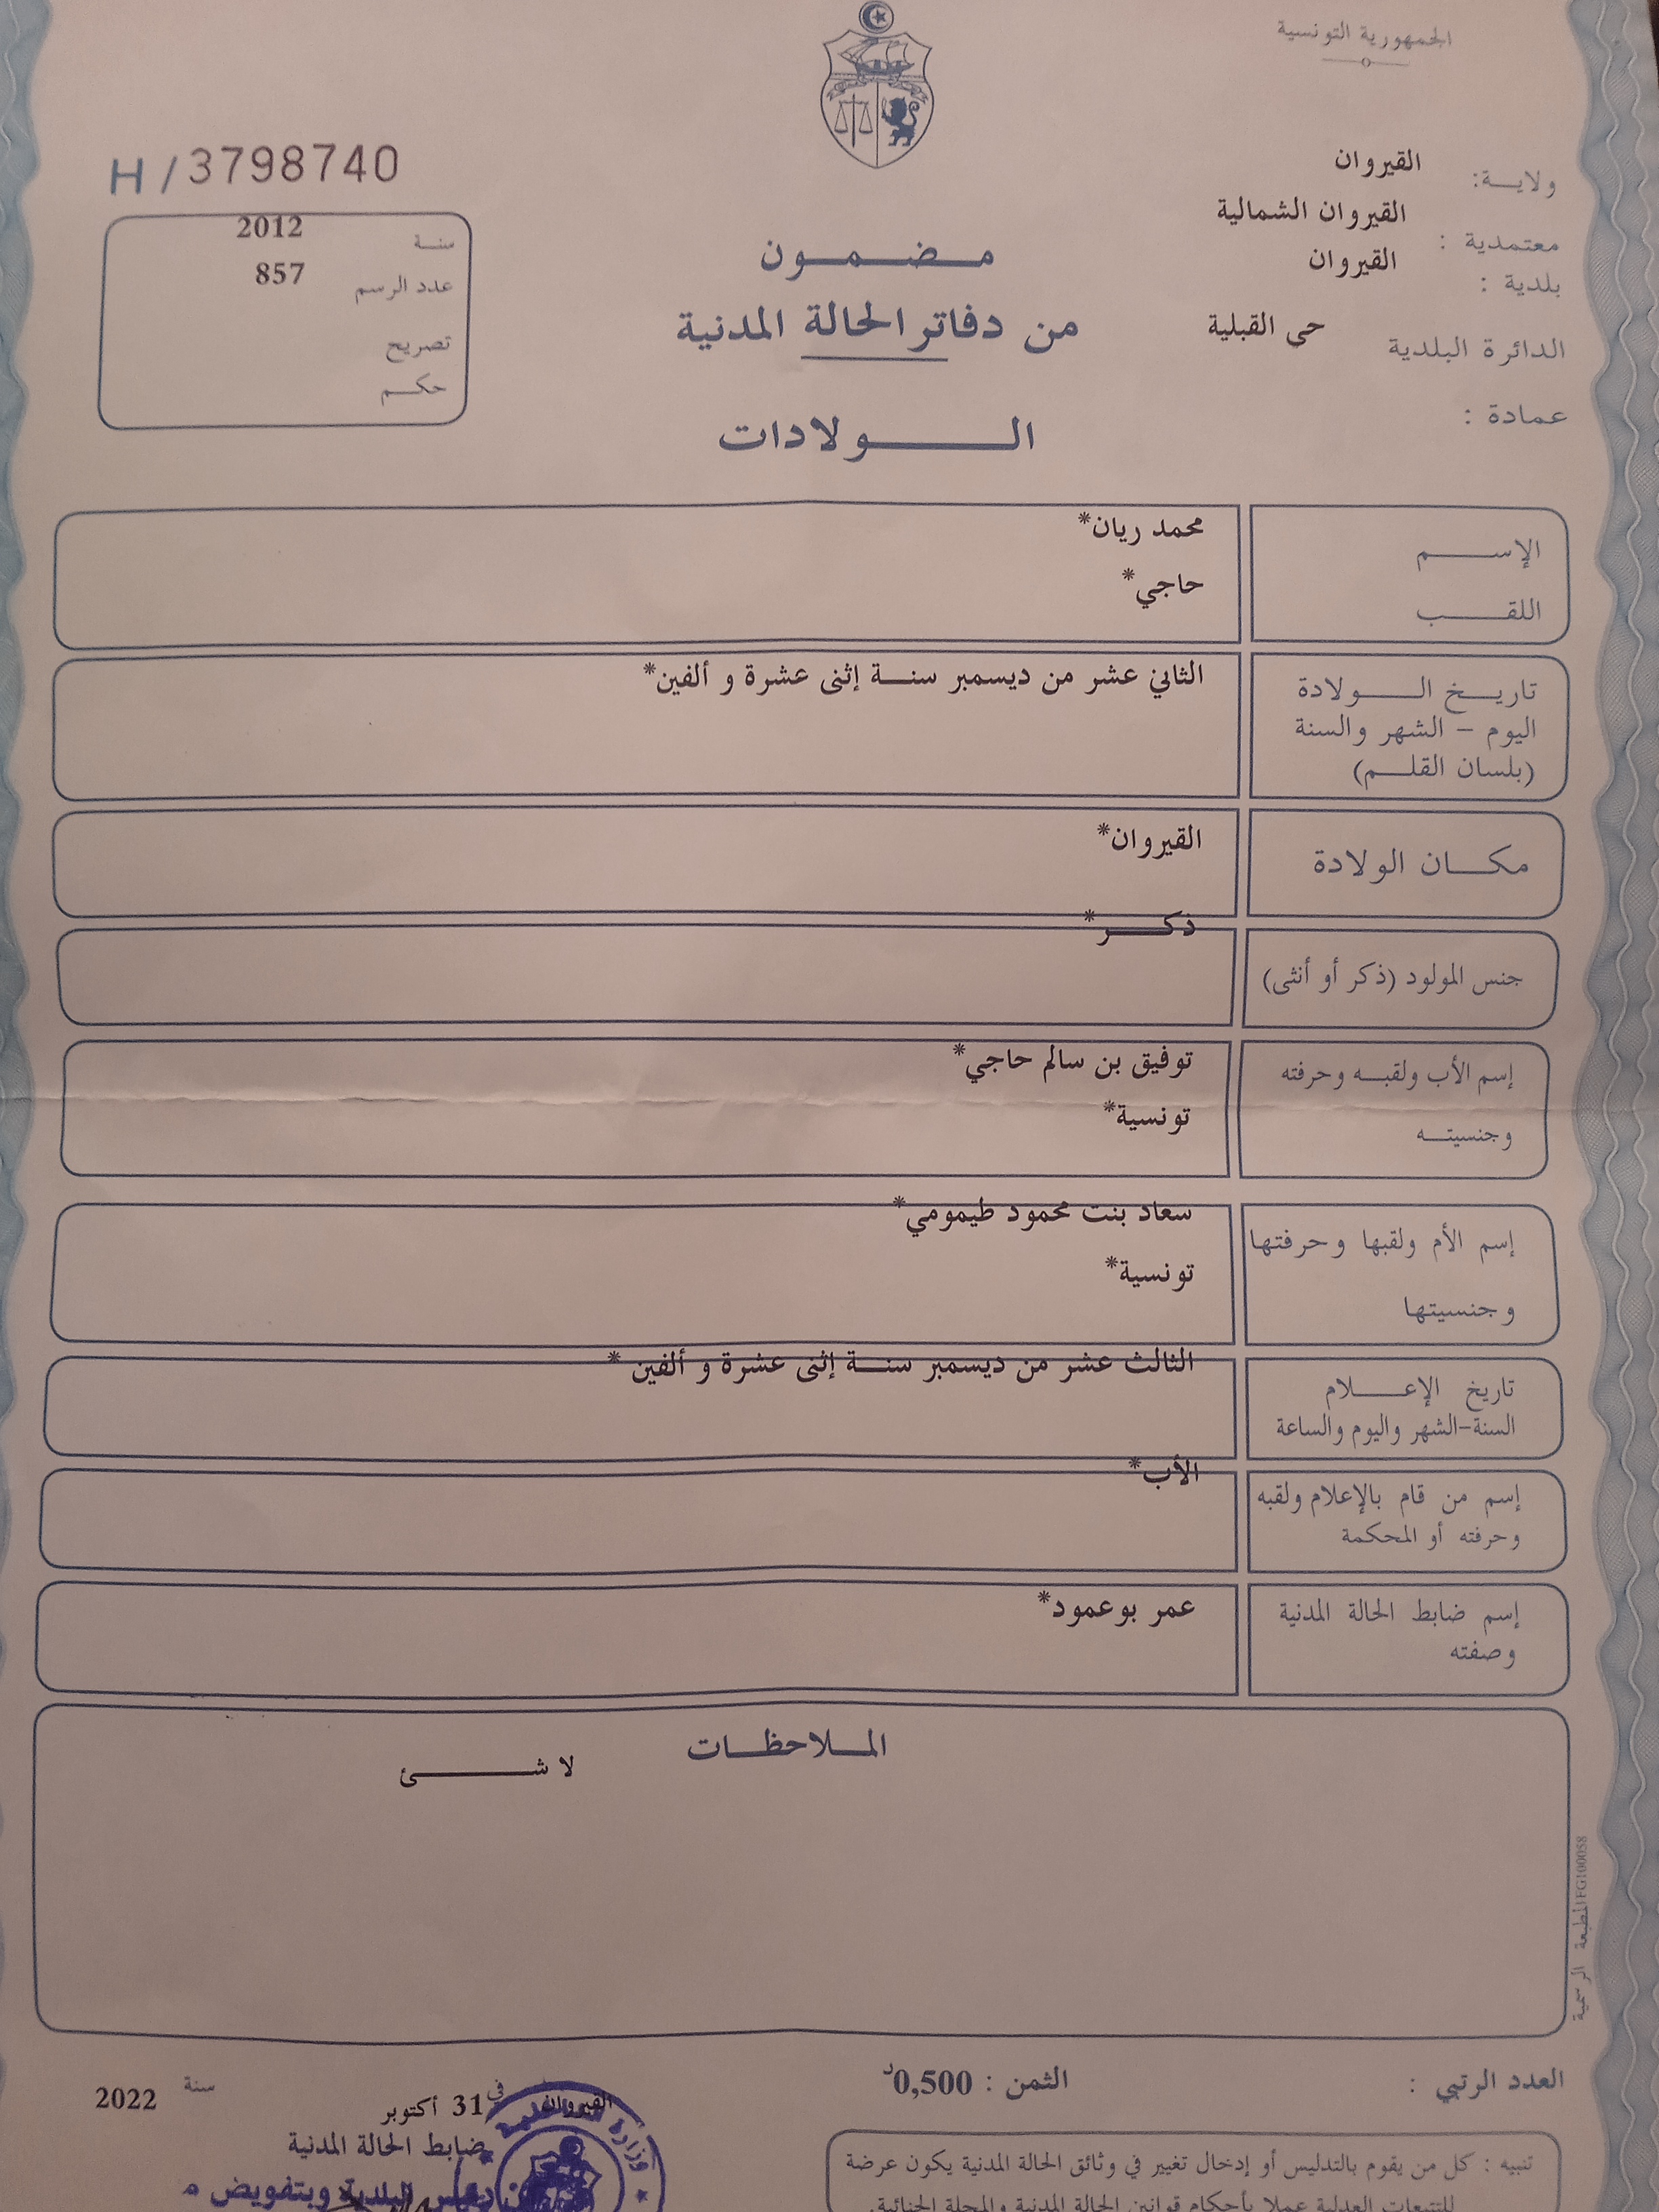 الجمهورية التونسية
ولايـــة: القيروان
معتمدية : القيروان الشمالية
بلدية : القيروان
الدائرة البلدية حى القبلية
عمادة :
H / 3798740
سنــة 2012
عدد الرسم 857
تصريح
حكــم
مــضــمــون
من دفاتر الحالة المدنية
الــولادات
الإســـم محمد ريان*
اللقــب حاجي*
تاريــخ الــولادة الثاني عشر من ديسمبر سنــة إثنى عشرة و ألفين*
اليوم – الشهر والسنة
(بلسان القلــم)
مكــان الولادة القيروان*
جنس المولود (ذكر أو أنثى) ذكــر*
إسم الأب ولقبــه وحرفته توفيق بن سالم حاجي*
وجنسيتــه تونسية*
إسم الأم ولقبها وحرفتها سعاد بنت محمود طيمومي*
وجنسيتها تونسية*
تاريخ الإعــلام الثالث عشر من ديسمبر سنــة إثنى عشرة و ألفين *
السنة-الشهر واليوم والساعة
إسم من قام بالإعلام ولقبه الأب*
وحرفته أو المحكمة
إسم ضابط الحالة المدنية عمر بوعمود*
وصفته
المــلاحظــات
لا شــئ
المطبعة الرسمية FG100058
العدد الرتبي :
الثمن : 0,500د
القيروان في 31 أكتوبر سنة 2022
ضابط الحالة المدنية
البلدية وبتفويض م
وزارة
تنبيه : كل من يقوم بالتدليس أو إدخال تغيير في وثائق الحالة المدنية يكون عرضة
للتتبعات العدلية عملا بأحكام قوانين الحالة المدنية والمجلة الجنائية.